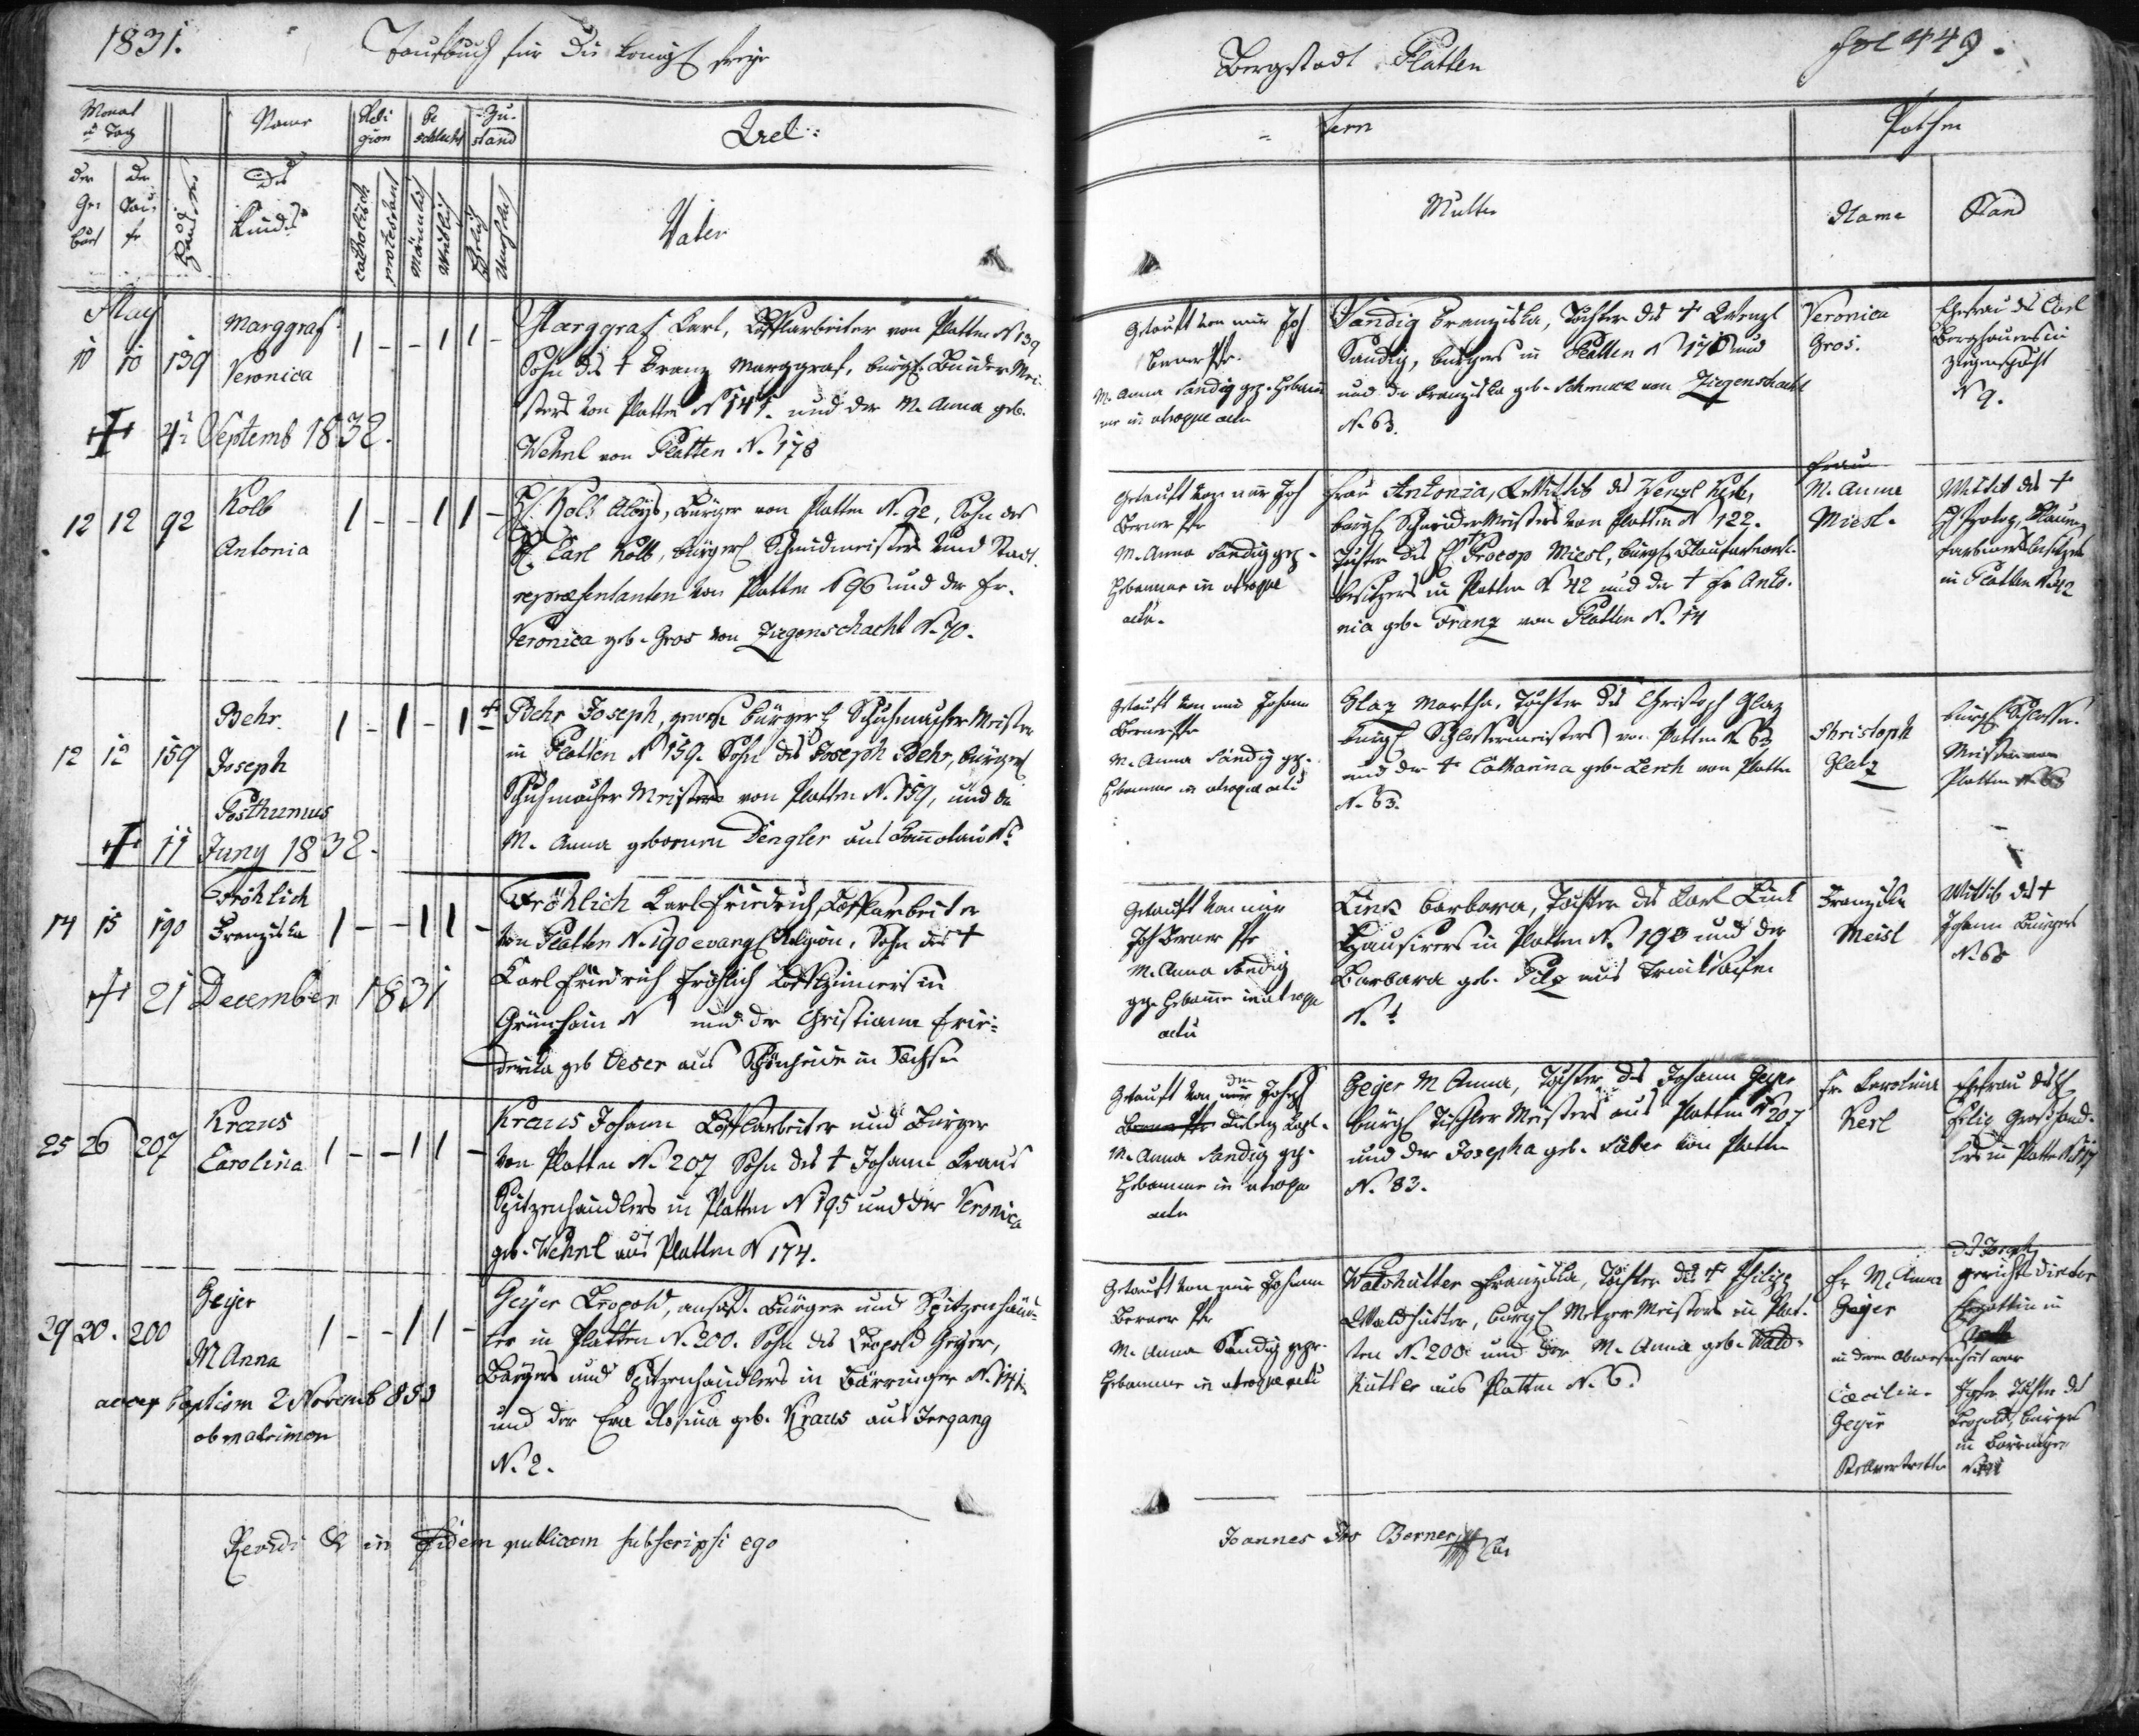 1831.
Taufbuch für die königl freye
Bergstadt Platten
fol 449.
Monat u Tag
der Geburt
der Taufe
Haus Nro
Name des Kindes
Religion
catholisch
protestant
Geschlecht
Mänlich
Weiblich
Zustand
Ehelich
Unehelich
Ael=
=tern
Vater
Mutter
Pathen
Name
Stand
May
10 10 139
Marggraf
Veronica
1 - - 1 1 -
Marggraf Karl, Löfflarbeiter von Platten N 139
Sohn des † Franz Marggraf, bürgl. Mei-
sters von Platten N 141. und der M. Anna geb.
Wehnl von Platten N. 178
Getauft von mir Jos
Berner Pfr.
M. Anna Sandig gep. Hebam
me in utroque actu
Sandig Franziska, Tochter des † Wenzl
Sandig, bürgers in Platten N 170 und
und der Franziska geb. Schmucz von Ziegenschacht
N. 63.
Veronica
Gros.
Ehefrau des Carl
Berghauers in
Ziegenschacht
N 9.
† 4t Septemb 1832.
12 12 92
Kolb
Antonia
1 - - 1 1 -
H. Kolb Aloys, Bürger von Platten N. 92, Sohn des
H. Carl Kolb, bürgerl Schmidmeisters und Stadt
repræsentanten von Platten N 96 und der Fr.
Veronica geb. Gros von Ziegenschacht N. 70.
Getauft von mir Jos
Berner Pfr
M. Anna Sandig gep.
Hebamme in utroque
actu.
Frau Antonia, Wittib des Wenzl Kerl,
bürgl Schneider Meisters von Platten N 122.
Tochter des H Procop Miesl, bürgl. Blaufarbwerk-
besitzers in Platten N 42 und der † Fr Anto-
nia geb. Franz von Platten N. 14
Frau
M. Anna
Miesl.
Wittib des †
H Prokop, Blau
farbwerksbesitzers
in Platten N 42
12 12 159
Behr
Joseph
Posthumus
1 - 1 - 1 -
† Behr Joseph, gewese bürgerl Schuhmacher Meister
in Platten N 159. Sohn des Joseph Behr, bürgerl
Schuhmacher Meisters von Platten N. 159, und der
M. Anna gebornen Dengler aus Commotau N:
Getauft von mir Johann
Berner Pfr
M. Anna Sandig gep.
Hebamme in utroque actu
Glaz Martha, Tochter des Christoph Glaz
bürgl Schlossermeisters von Platten N 63
und der † Catharina geb. Lerch von Platten
N. 63.
Christoph
Glaz
bürgl Schlosser
Meister von
Platten N 63
† 11 Juny 1832.
14 15 190
Fröhlich
Franziska
1 - - 1 1 -
Fröhlich Karl Friedrich, Löfflarbeiter
von Platten N. 190 evangl Religion, Sohn des †
Karl Friedrich Fröhlich in
Grünhain N und der Christiana Frie=
derika geb Oeser aus Schönheide in Sachsen
Getauft von mir
Jos Berner Pfr
M. Anna Sandig
gep. Hebamme in utroque
actu
Link Barbara, Tochter des Karl Link
Hausirers in Platten N. 190 und der
Barbara geb. Pilz aus Trinkseifen
N. :
Franziska
Meisl
Wittib des †
Johann Bürgers
N. 68
† 21 December 1831
25 26 207
Kraus
Carolina
1 - - 1 1 -
Kraus Johann Löfflarbeiter und Bürger
von Platten N. 207 Sohn des † Johann Kraus
Spitzenhändlers in Platten N 195 und der Veronica
geb. Wehnl aus Platten N 174.
Getauft von dem Joseph
Berner Pfr Kapl.
M. Anna Sandig gep.
Hebamme in utroque
actu
Geyer M Anna, Tochter des Johann Geyer
bürgl Tischler Meisters aus Platten N 207
und der Josepha geb. Fäber von Platten
N. 83.
Fr. Karolina
Kerl
Ehefrau des H
Großhänd-
lers in Platten N 87
29 30. 200
Geyer
M Anna
1 - - 1 1 -
Geyer Leopold, ansäß. Bürger und Spitzenhänd-
ler in Platten N. 200. Sohn des Leopold Geyer,
Bürgers und Spitzenhändlers in Bärringen N. 141
und der Eva Rosina geb. Kraus aus Irrgang
N. 2.
Getauft von mir Johann
Berner Pfr
M. Anna Sandig gepr.
Hebamme in utroque actu
Waldhütter Franziska, Tochter des † Philipp
Waldhütter, bürgl Metzger Meisters in Plat-
ten N. 200 und der M. Anna geb. Wald-
hütter aus Platten N. 6.
Fr M. Anna
Geyer
in deren Abwesenheit war
Cæcilia
Geyer
Stellvertretter
des Joseph
Gericht director
Ehegattin in
Jgfr. Tochter des
Leopold, bürgers
in Bärringen
N. 141
accep baptism 2 Novemb 853
ob matrimon
Revidi & in Fidem publicam subscripsi ego
Joannes Jos Berner